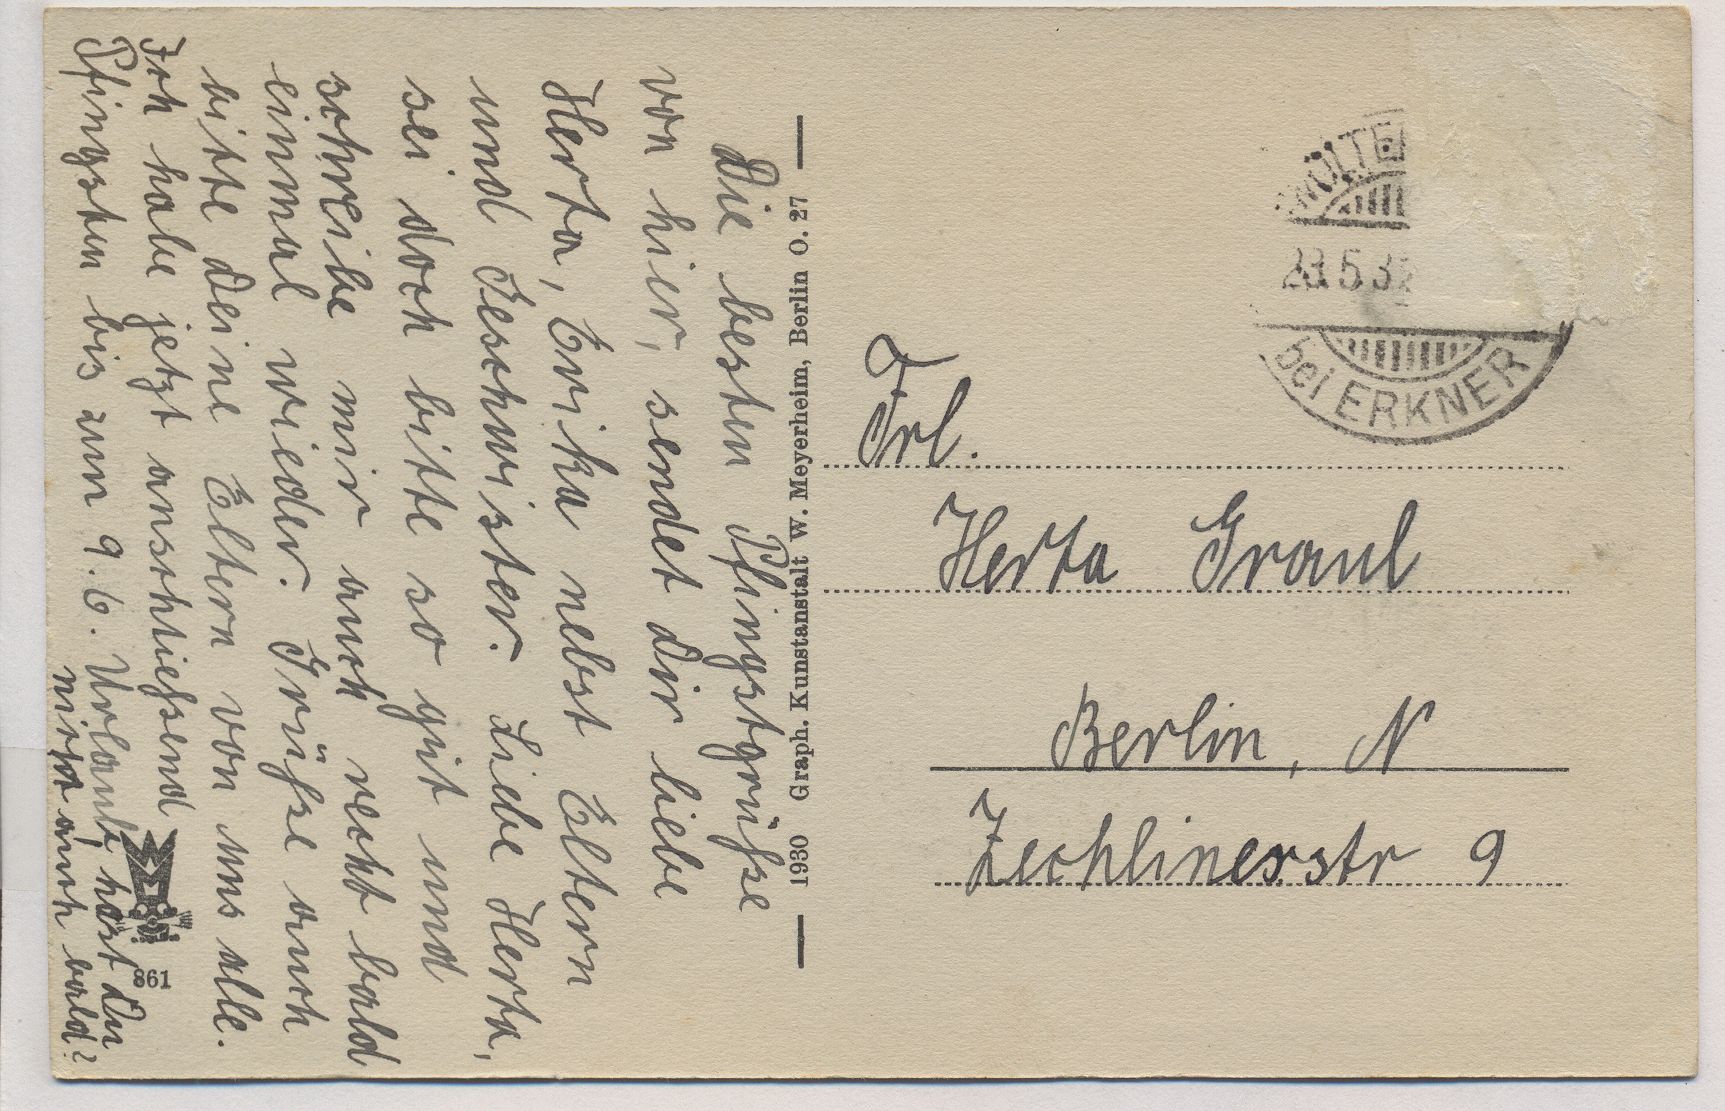 Die besten Pfingstgrüße
von hier, sendet Dir liebe
Herta, Erika nebst Eltern
und Geschwister. Liebe Herta,
sei doch bitte so gut und
schreibe mir auch recht bald
einmal wieder. Grüße auch
bitte Deine Eltern von uns alle.
Ich habe jetzt anschließend
Pfingsten bis zum 9. 6. Urlaub, hast Du
nicht auch bald?
1930 Graph. Kunstanstalt W. Meyerheim, Berlin O. 27
861
WOLTE
23.5.3
bei ERKNER
Frl.
Herta Graul
Berlin, N
Zechlinerstr 9